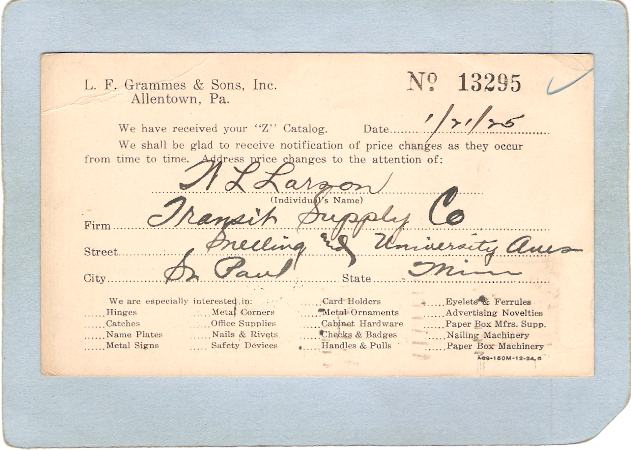 L. F. Grammes & Sons, Inc.
Allentown, Pa.
Nº 13295
We have received your "Z" Catalog. Date 1/21/25
We shall be glad to receive notification of price changes as they occur
from time to time. Address price changes to the attention of:
N L Larson
(Individual's Name)
Firm Transit Supply Co
Street Snelling and University Aves
City St Paul State Minn
We are especially interested in:
Hinges
Catches
Name Plates
Metal Signs
Metal Corners
Office Supplies
Nails & Rivets
Safety Devices
Card Holders
Metal Ornaments
Cabinet Hardware
Checks & Badges
Handles & Pulls
Eyelets & Ferrules
Advertising Novelties
Paper Box Mfrs. Supp.
Nailing Machinery
Paper Box Machinery